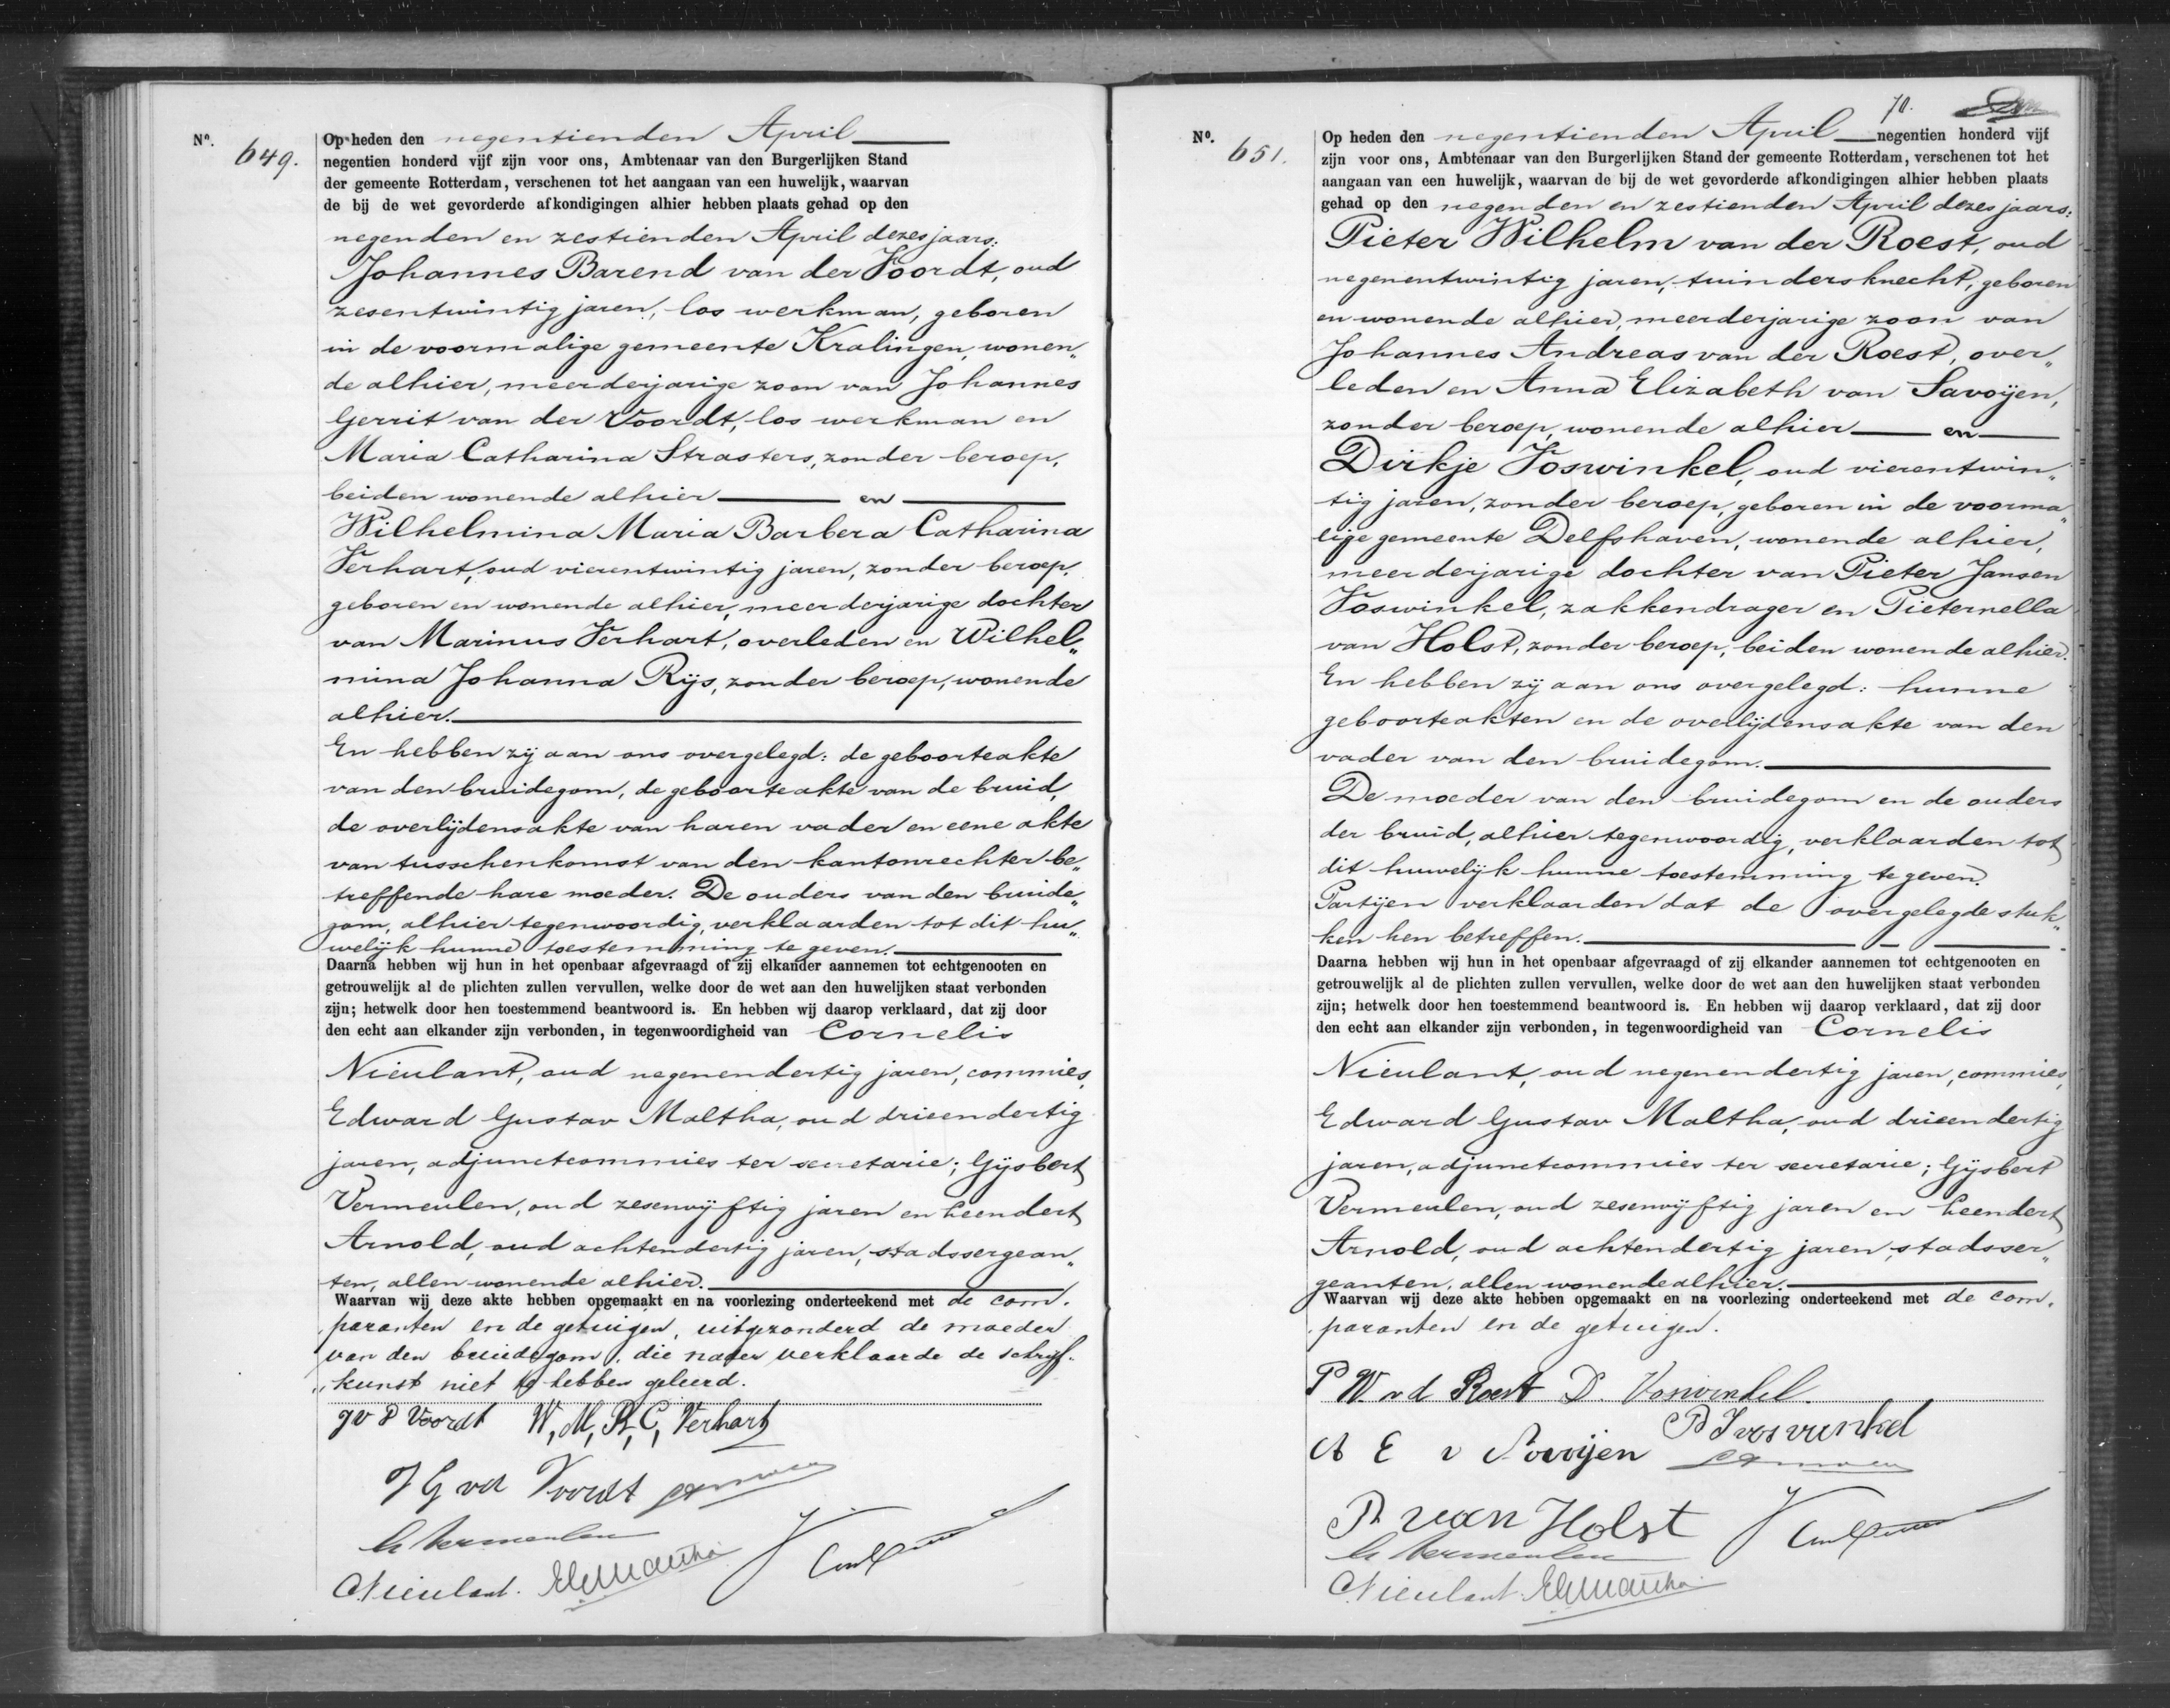 Nº. 649.
Op heden den negentienden April
negentien honderd vijf zijn voor ons, Ambtenaar van den Burgerlijken Stand
der gemeente Rotterdam, verschenen tot het aangaan van een huwelijk, waarvan
de bij de wet gevorderde afkondigingen alhier hebben plaats gehad op den
negenden en zestienden April dezes jaars:
Johannes Barend van der Voordt, oud
zesentwintig jaren, los werkman, geboren
in de voormalige gemeente Kralingen, wonen„
de alhier, meerderjarige zoon van Johannes
Gerrit van der Voordt, los werkman en
Maria Catharina Strasters, zonder beroep,
beiden wonende alhier en
Wilhelmina Maria Barbera Catharina
Verhart, oud vierentwintig jaren, zonder beroep,
geboren en wonende alhier, meerderjarige dochter
van Marinus Verhart, overleden en Wilhel„
mina Johanna Rijs, zonder beroep, wonende
alhier.
En hebben zij aan ons overgelegd: de geboorteakte
van den bruidegom, de geboorteakte van de bruid,
de overlijdensakte van haren vader en eene akte
van tusschenkomst van den kantonrechter be„
treffende hare moeder. De ouders van den bruide„
gom, alhier tegenwoordig, verklaarden tot dit hu„
welijk hunne toestemming te geven.
Daarna hebben wij hun in het openbaar afgevraagd of zij elkander aannemen tot echtgenooten en
getrouwelijk al de plichten zullen vervullen, welke door de wet aan den huwelijken staat verbonden
zijn; hetwelk door hen toestemmend beantwoord is. En hebben wij daarop verklaard, dat zij door
den echt aan elkander zijn verbonden, in tegenwoordigheid van Cornelis
Nieulant, oud negenendertig jaren, commies,
Edward Gustav Maltha, oud drieendertig
jaren, adjunctcommies ter secretarie; Gijsbert
Vermeulen, oud zesenvijftig jaren en Leendert
Arnold, oud achtendertig jaren, stadssergean„
ten, allen wonende alhier.
Waarvan wij deze akte hebben opgemaakt en na voorlezing onderteekend met de com„
paranten en de getuigen, uitgezonderd de moeder
van den bruidegom, die nader verklaarde de schrijf„
„kunst niet te hebben geleerd.
J v d Voordt W, M, B, C, Verhart
J G vd Voordt
G Vermeulen
C Nieulant. EGMaltha
70.
Nº. 651.
Op heden den negentienden April negentien honderd vijf
zijn voor ons, Ambtenaar van den Burgerlijken Stand der gemeente Rotterdam, verschenen tot het
aangaan van een huwelijk, waarvan de bij de wet gevorderde afkondigingen alhier hebben plaats
gehad op den negenden en zestienden April dezes jaars:
Pieter Wilhelm van der Roest, oud
negenentwintig jaren, tuindersknecht, geboren
en wonende alhier, meerderjarige zoon van
Johannes Andreas van der Roest, over„
leden en Anna Elizabeth van Savoijen,
zonder beroep, wonende alhier en
Dirkje Voswinkel, oud vierentwin„
tig jaren, zonder beroep, geboren in de voorma„
lige gemeente Delfshaven, wonende alhier,
meerderjarige dochter van Pieter Jansen
Voswinkel, zakkendrager en Pieternella
van Holst, zonder beroep, beiden wonende alhier.
En hebben zij aan ons overgelegd: hunne
geboorteakten en de overlijdensakte van den
vader van den bruidegom.
De moeder van den bruidegom en de ouders
der bruid, alhier tegenwoordig, verklaarden tot
dit huwelijk hunne toestemming te geven.
Partijen verklaarden dat de overgelegde stuk„
ken hen betreffen.
Daarna hebben wij hun in het openbaar afgevraagd of zij elkander aannemen tot echtgenooten en
getrouwelijk al de plichten zullen vervullen, welke door de wet aan den huwelijken staat verbonden
zijn; hetwelk door hen toestemmend beantwoord is. En hebben wij daarop verklaard, dat zij door
den echt aan elkander zijn verbonden, in tegenwoordigheid van Cornelis
Nieulant, oud negenendertig jaren, commies,
Edward Gustav Maltha, oud drieendertig
jaren, adjunctcommies ter secretarie; Gijsbert
Vermeulen, oud zesenvijftig jaren en Leendert
Arnold, oud achtendertig jaren, stadsser„
geanten, allen wonende alhier.
Waarvan wij deze akte hebben opgemaakt en na voorlezing onderteekend met de com„
paranten en de getuigen.
P W v d Roest D. Voswinkel
A E v Savoijen P J voswinkel
P van Holst
G Vermeulen
C Nieulant EGMaltha